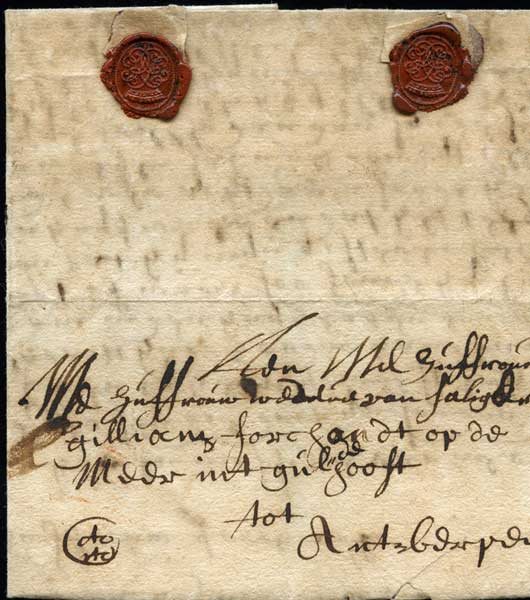 Aen Mel Juffrouw
Me Juffrouw wedue van saligher
gilliam forchondt op de
Meer int gulhooft
tot
Antwberpe